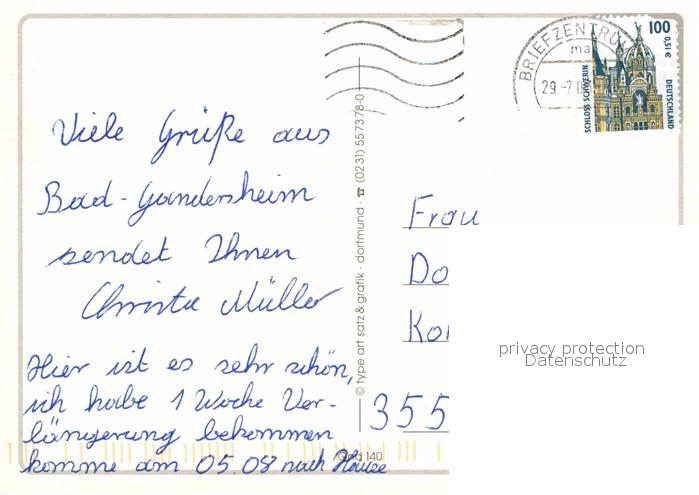 BRIEFZENTRU
ma
29-7.0
100
0,51€
SCHLOSS SCHWERIN
DEUTSCHLAND
Viele Grüße aus
Bad-Gandersheim
sendet Ihnen
Christa Müller
Hier ist es sehr schön,
ich habe 1 Woche Ver-
längerung bekommen
komme am 05.08 nach Hause
© type art satz & grafik · dortmund · ☎ (0231) 557378-0
Gnd 140
Frau
Do
Kor
355
privacy protection
Datenschutz